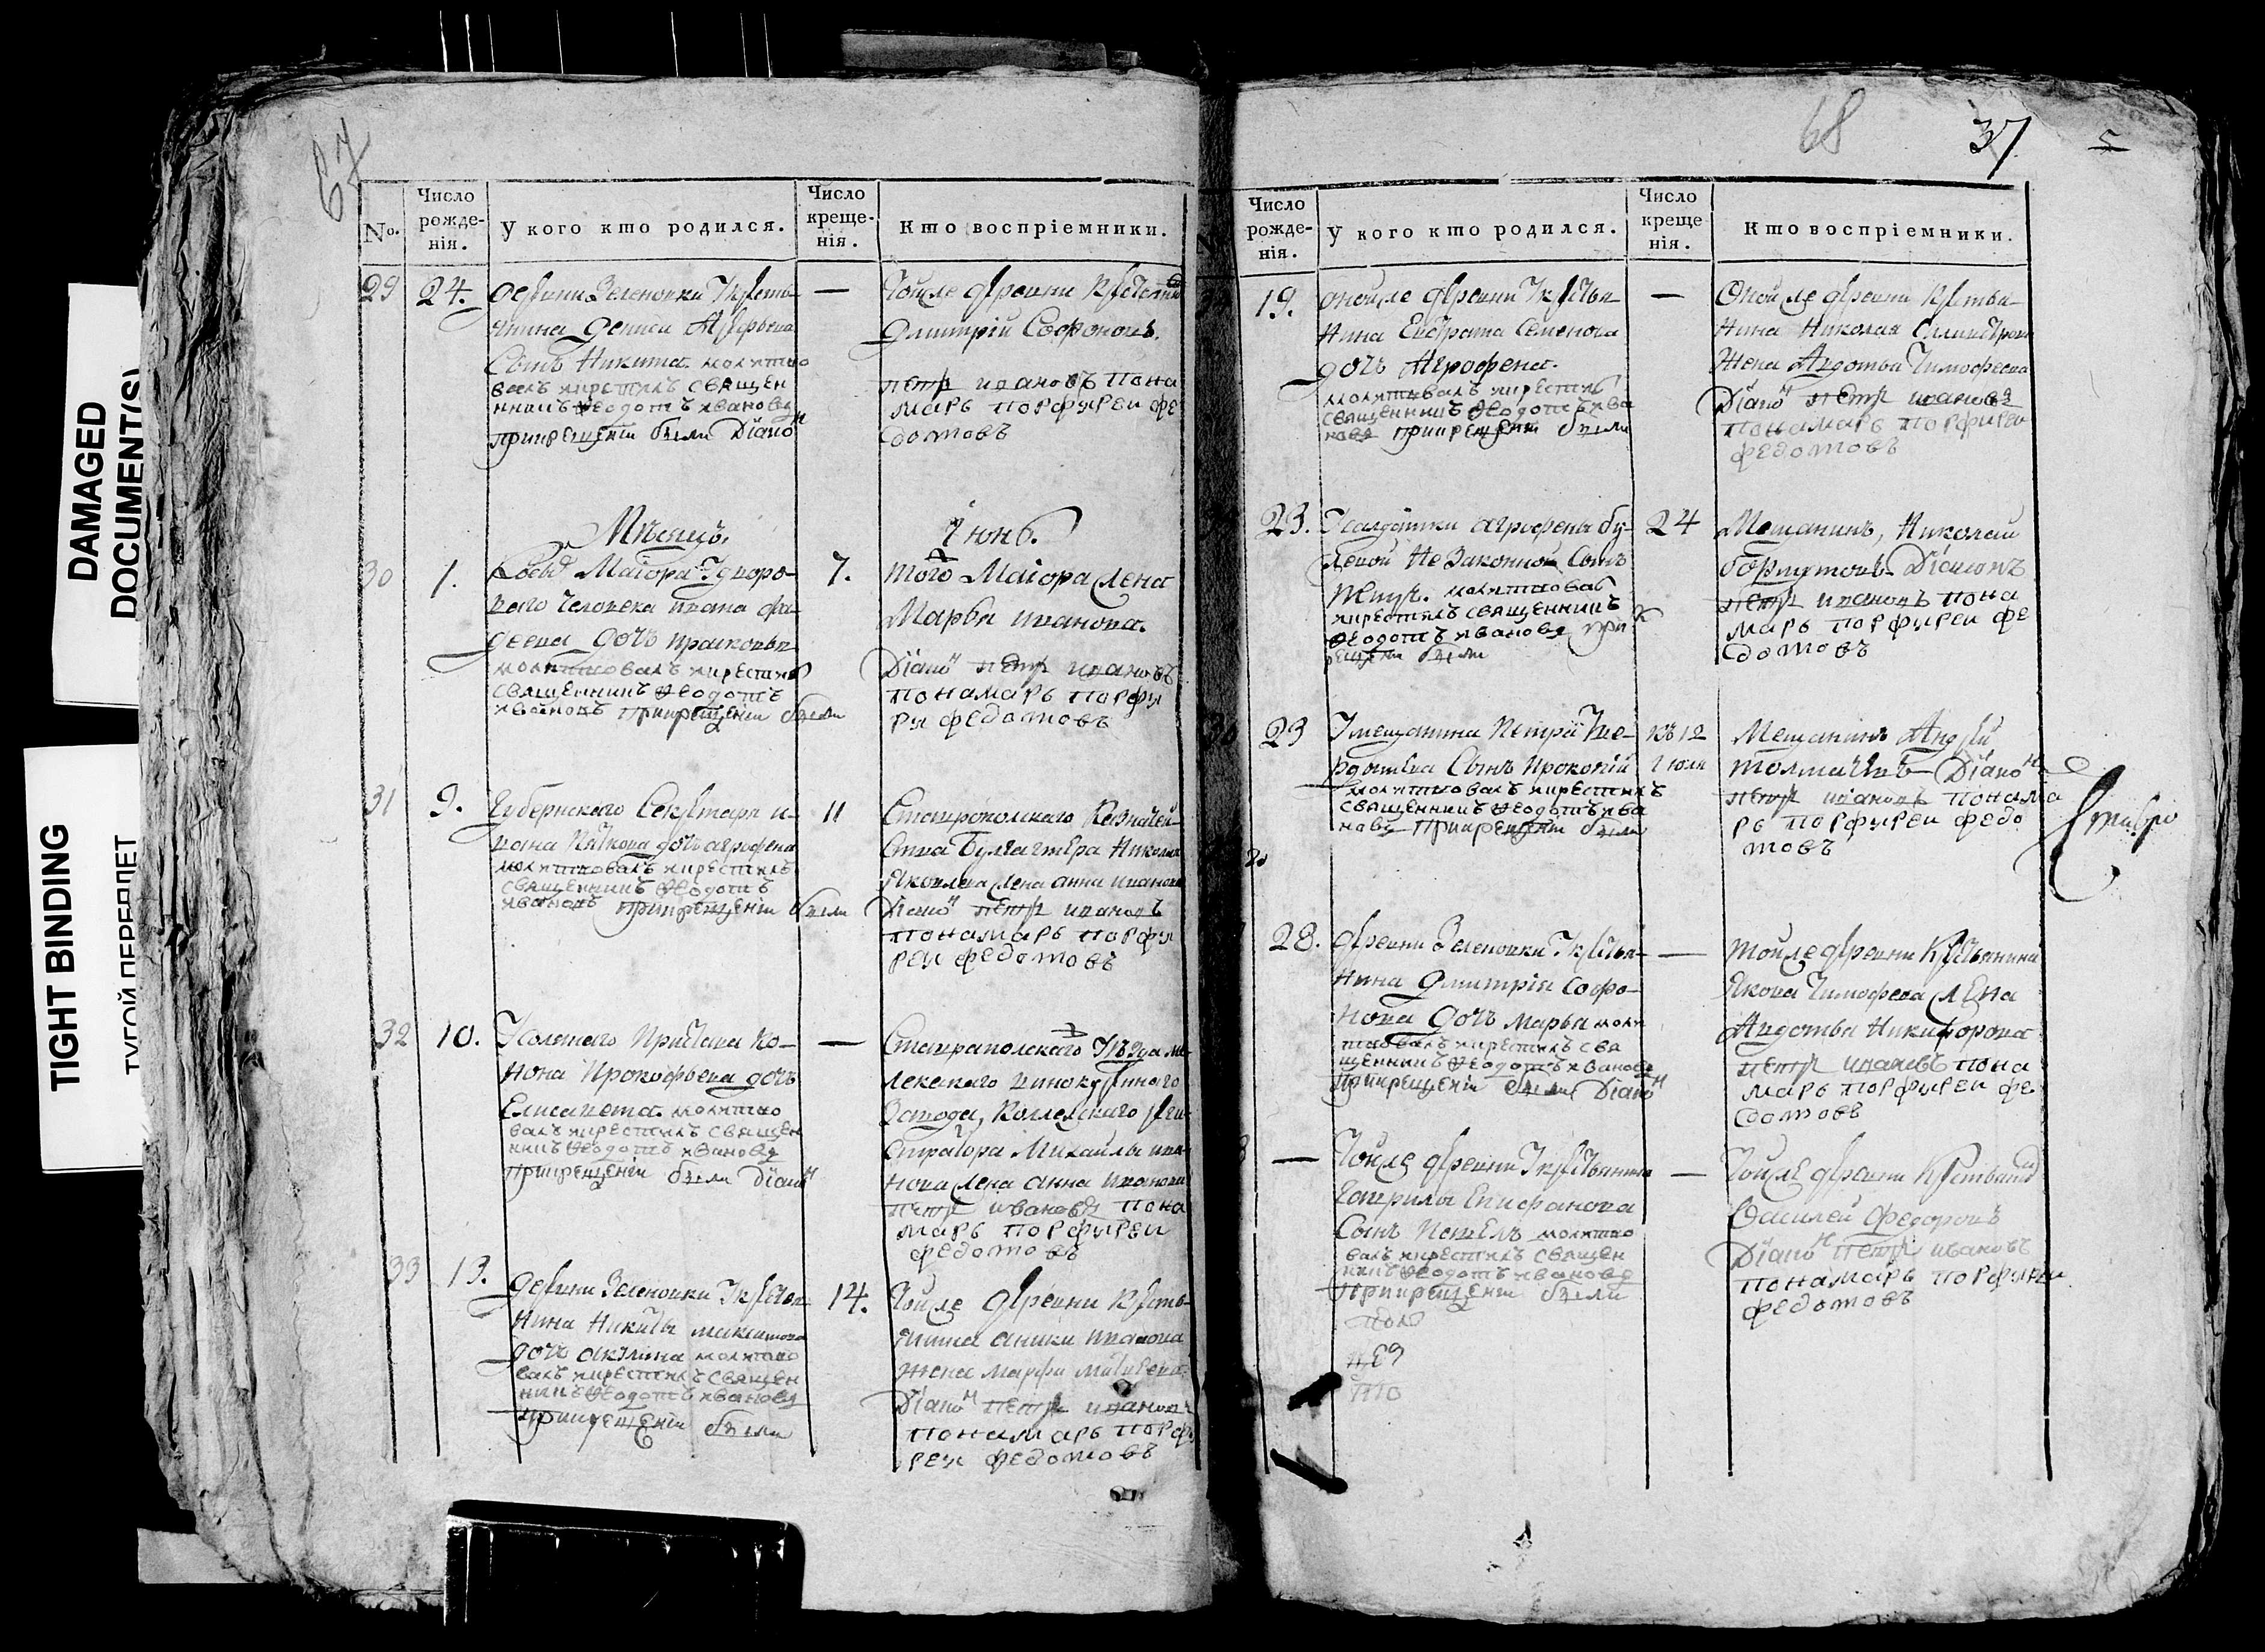 DAMAGED
DOCUMENT(S)
TIGHT BINDING
ТУГОЙ ПЕРЕПЛЕТ
67
No.
Число рожденія.
У кого кто родился.
Число крещенія.
Кто воспріемники.
29
24.
деревни Зеленовки У кресть
янина Дениса
Сынъ Никита. молитво
валъ икрестилъ священ
никъ Ѳеодотъ Ивановъ
прикрещеніи были Діакон
—
Тойже деревни
Дмитрій Софроновъ.
петр ивановъ пона
марь порфиреи фе
дотовъ
Мѣсяцъ.
Іюнь.
30
1.
Маіора
ваго человека ивана фа
деева дочь праковья
молитвовалъ икрестилъ
священникъ Ѳеодотъ
Ивановъ прикрещеніи были
7.
того Маіора жена
Марья иванова.
Діакон петр ивановъ
понамарь порфи
ри федотовъ
31
9.
Губернскаго Секретаря и
вана дочь агрофена
молитвовалъ икрестилъ
священникъ Ѳеодотъ
Ивановъ прикрещеніи были
11
Ставропольскаго Казначей
Бухгалтера Николая
Яковлева жена анна иванова
Діакон петр ивановъ
понамарь порфи
реи федотовъ
32
10.
Но
нона Прокофьева дочь
Елисавета. молитво
валъ икрестилъ священ
никъ Ѳеодотъ Ивановъ
прикрещеніи были Діакон
—
Ставропольскаго Уѣзда ме
лекескаго винокуреннаго
Завода, Коллежскаго реги
стратора Михайлы ива
нова жена анна иванова
петр ивановъ пона
марь порфиреи
федотовъ
33
13.
деревни Зеленовки У кресть
янина Никиты
дочь акилина молитво
валъ икрестилъ священ
никъ Ѳеодотъ Ивановъ
прикрещеніи были
14.
Тойже деревни кресть
янина аники иванова
жена марфа матвеева
Діакон петр ивановъ
понамарь порфи
реи федотовъ
68
37
Число рожденія.
У кого кто родился.
Число крещенія.
Кто воспріемники.
19.
оной же деревни У крестья
нина Евстрата Семенова
дочь Агрофена.
молитвовалъ икрестилъ
священникъ Ѳеодотъ Ива
новъ прикрещеніи были
—
Оной же деревни крестья
нина Николая Селиверстова
жена Авдотья Тимофеева
Діакон петр ивановъ
понамарь порфиреи
федотовъ
23.
У салдатки агрофены бу
Незаконной Сынъ
Петръ. молитвовал
икрестилъ священникъ
Ѳеодотъ Ивановъ при к
рещеніи были
24
Мещанинъ, Николай
Діаконъ
петр ивановъ пона
марь порфиреи фе
дотовъ
29
У мещанина Петра
Сынъ Прокопій
молитвовалъ икрестилъ
священникъ Ѳеодотъ Ива
новъ прикрещеніи были
12
Іюля
Мещанинъ Андрей
толмачевъ Діакон
петр ивановъ понама
рь порфиреи федо
товъ
28.
деревни Зеленовки У крестья
нина Дмитрія Софро
нова дочь марья моли
твовалъ икрестилъ свя
щенникъ Ѳеодотъ Ивановъ
прикрещеніи были Діакон
—
той же деревни крестьянина
Якова Тимофеева жена
Авдотья Никифорова
петр ивановъ пона
марь порфиреи фе
дотовъ
—
Той же деревни У крестьянина
Гаврилы Епифанова
Сынъ Павелъ молитво
валъ икрестилъ священ
никъ Ѳеодотъ Ивановъ
прикрещеніи были
—
Той же деревни крестьянинъ
Василей Федоровъ
Діакон петр ивановъ
понамарь порфиреи
федотовъ